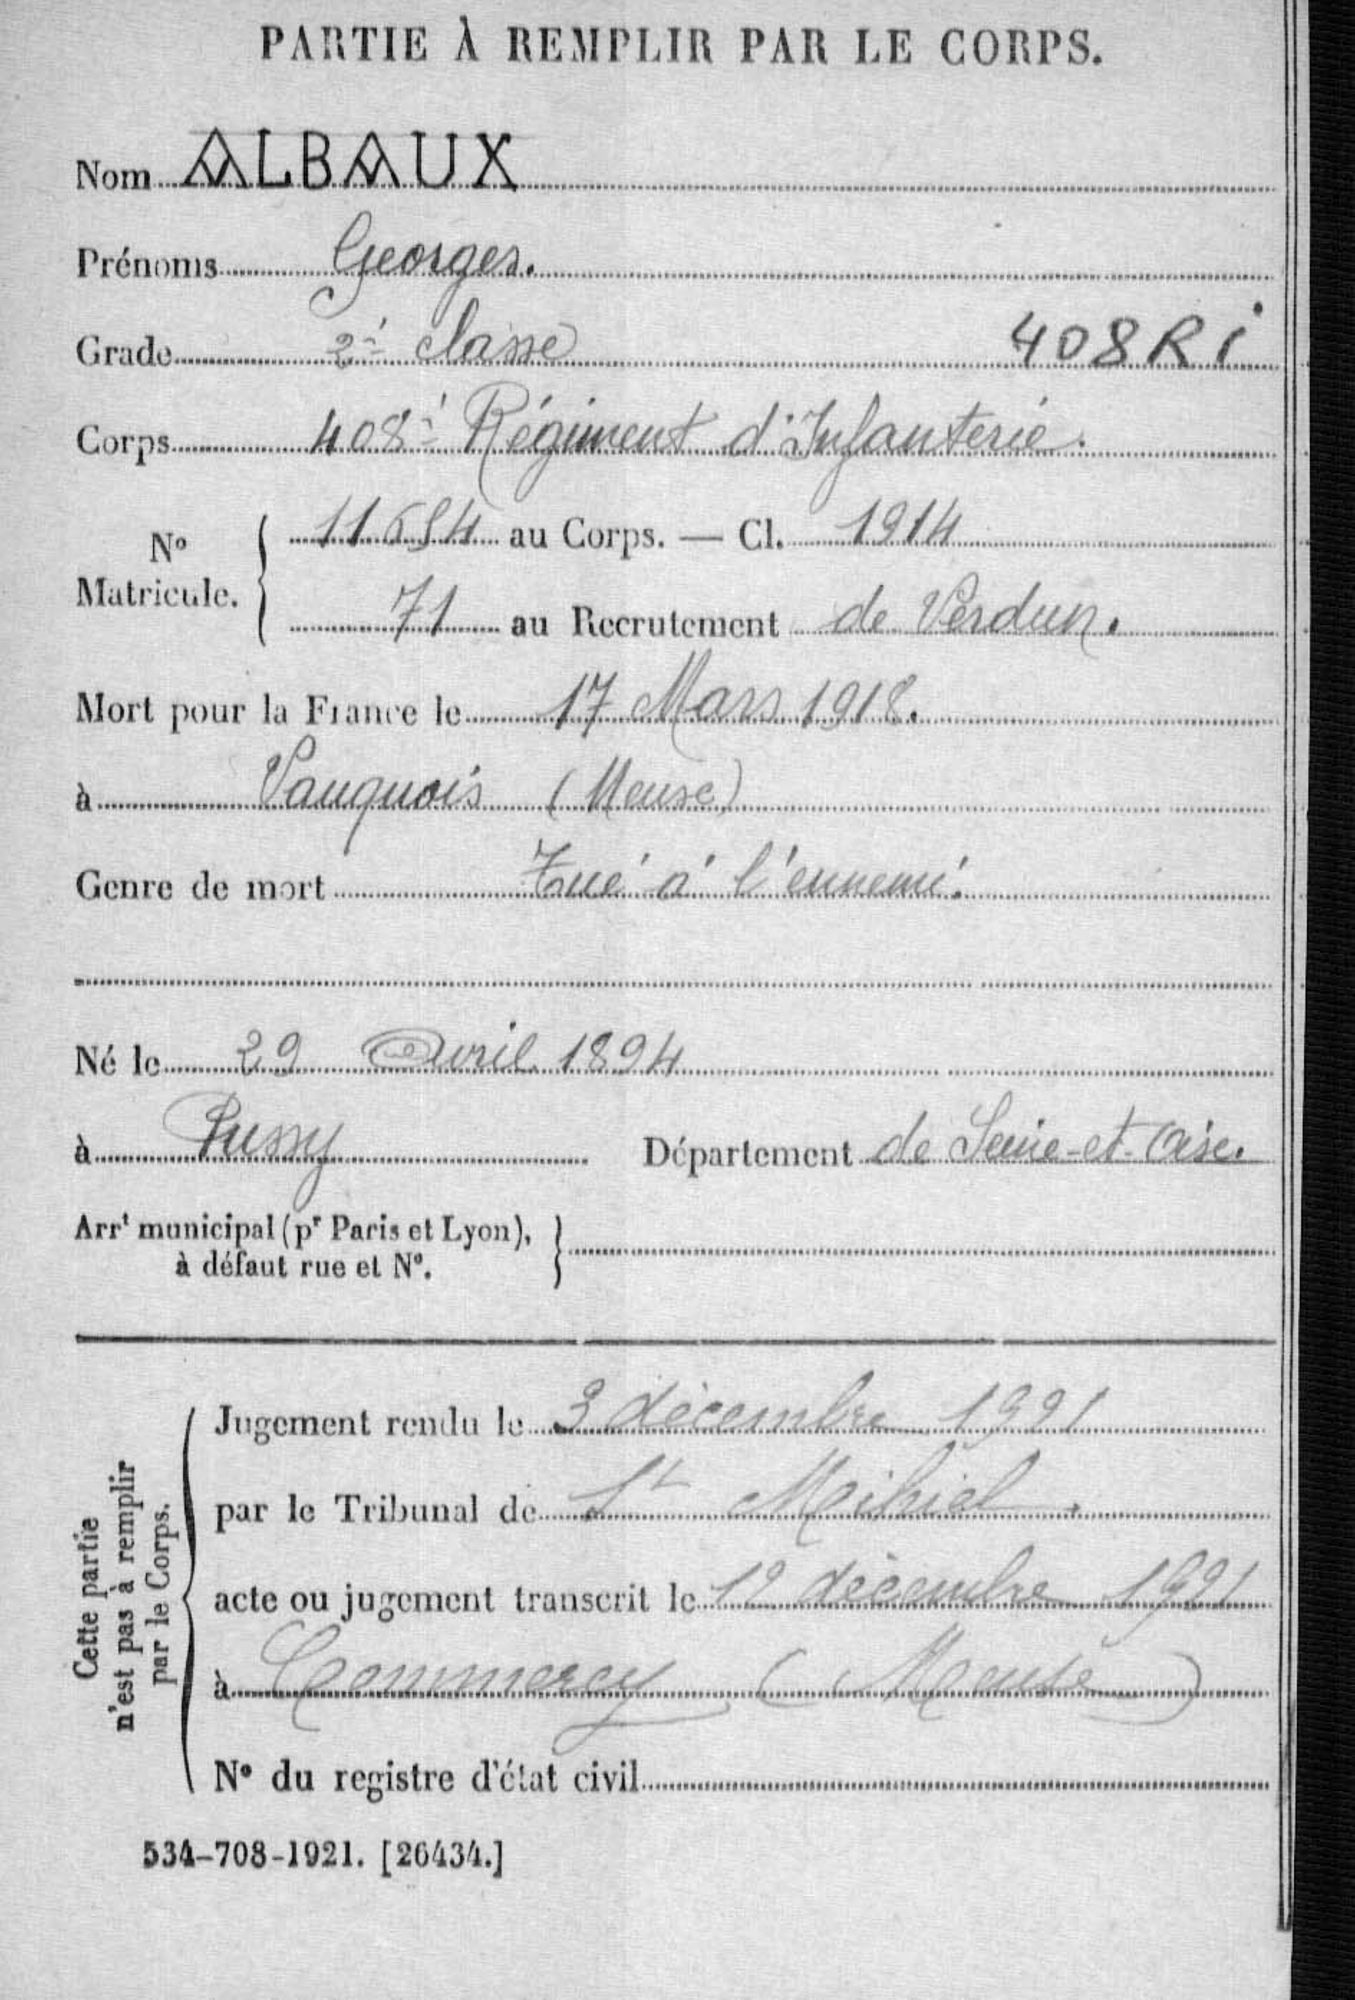 PARTIE À REMPLIR PAR LE CORPS.
Nom ALBAUX
Prénoms Georges.
Grade 2è classe 408 RI
Corps 408è Régiment d'Infanterie.
N° Matricule. { 11654 au Corps. — Cl. 1914
71 au Recrutement de Verdun.
Mort pour la France le 17 Mars 1918.
à Vauquois (Meuse)
Genre de mort Tué à l'ennemi.
Né le 29 Avril 1894
à Pussy Département de Seine-et-Oise.
Arrt municipal (pr Paris et Lyon), à défaut rue et N°. }
Cette partie n'est pas à remplir par le Corps. {
Jugement rendu le 3 décembre 1921
par le Tribunal de St Mihiel.
acte ou jugement transcrit le 12 décembre 1921
à Commercy (Meuse)
N° du registre d'état civil
534-708-1921. [26434.]